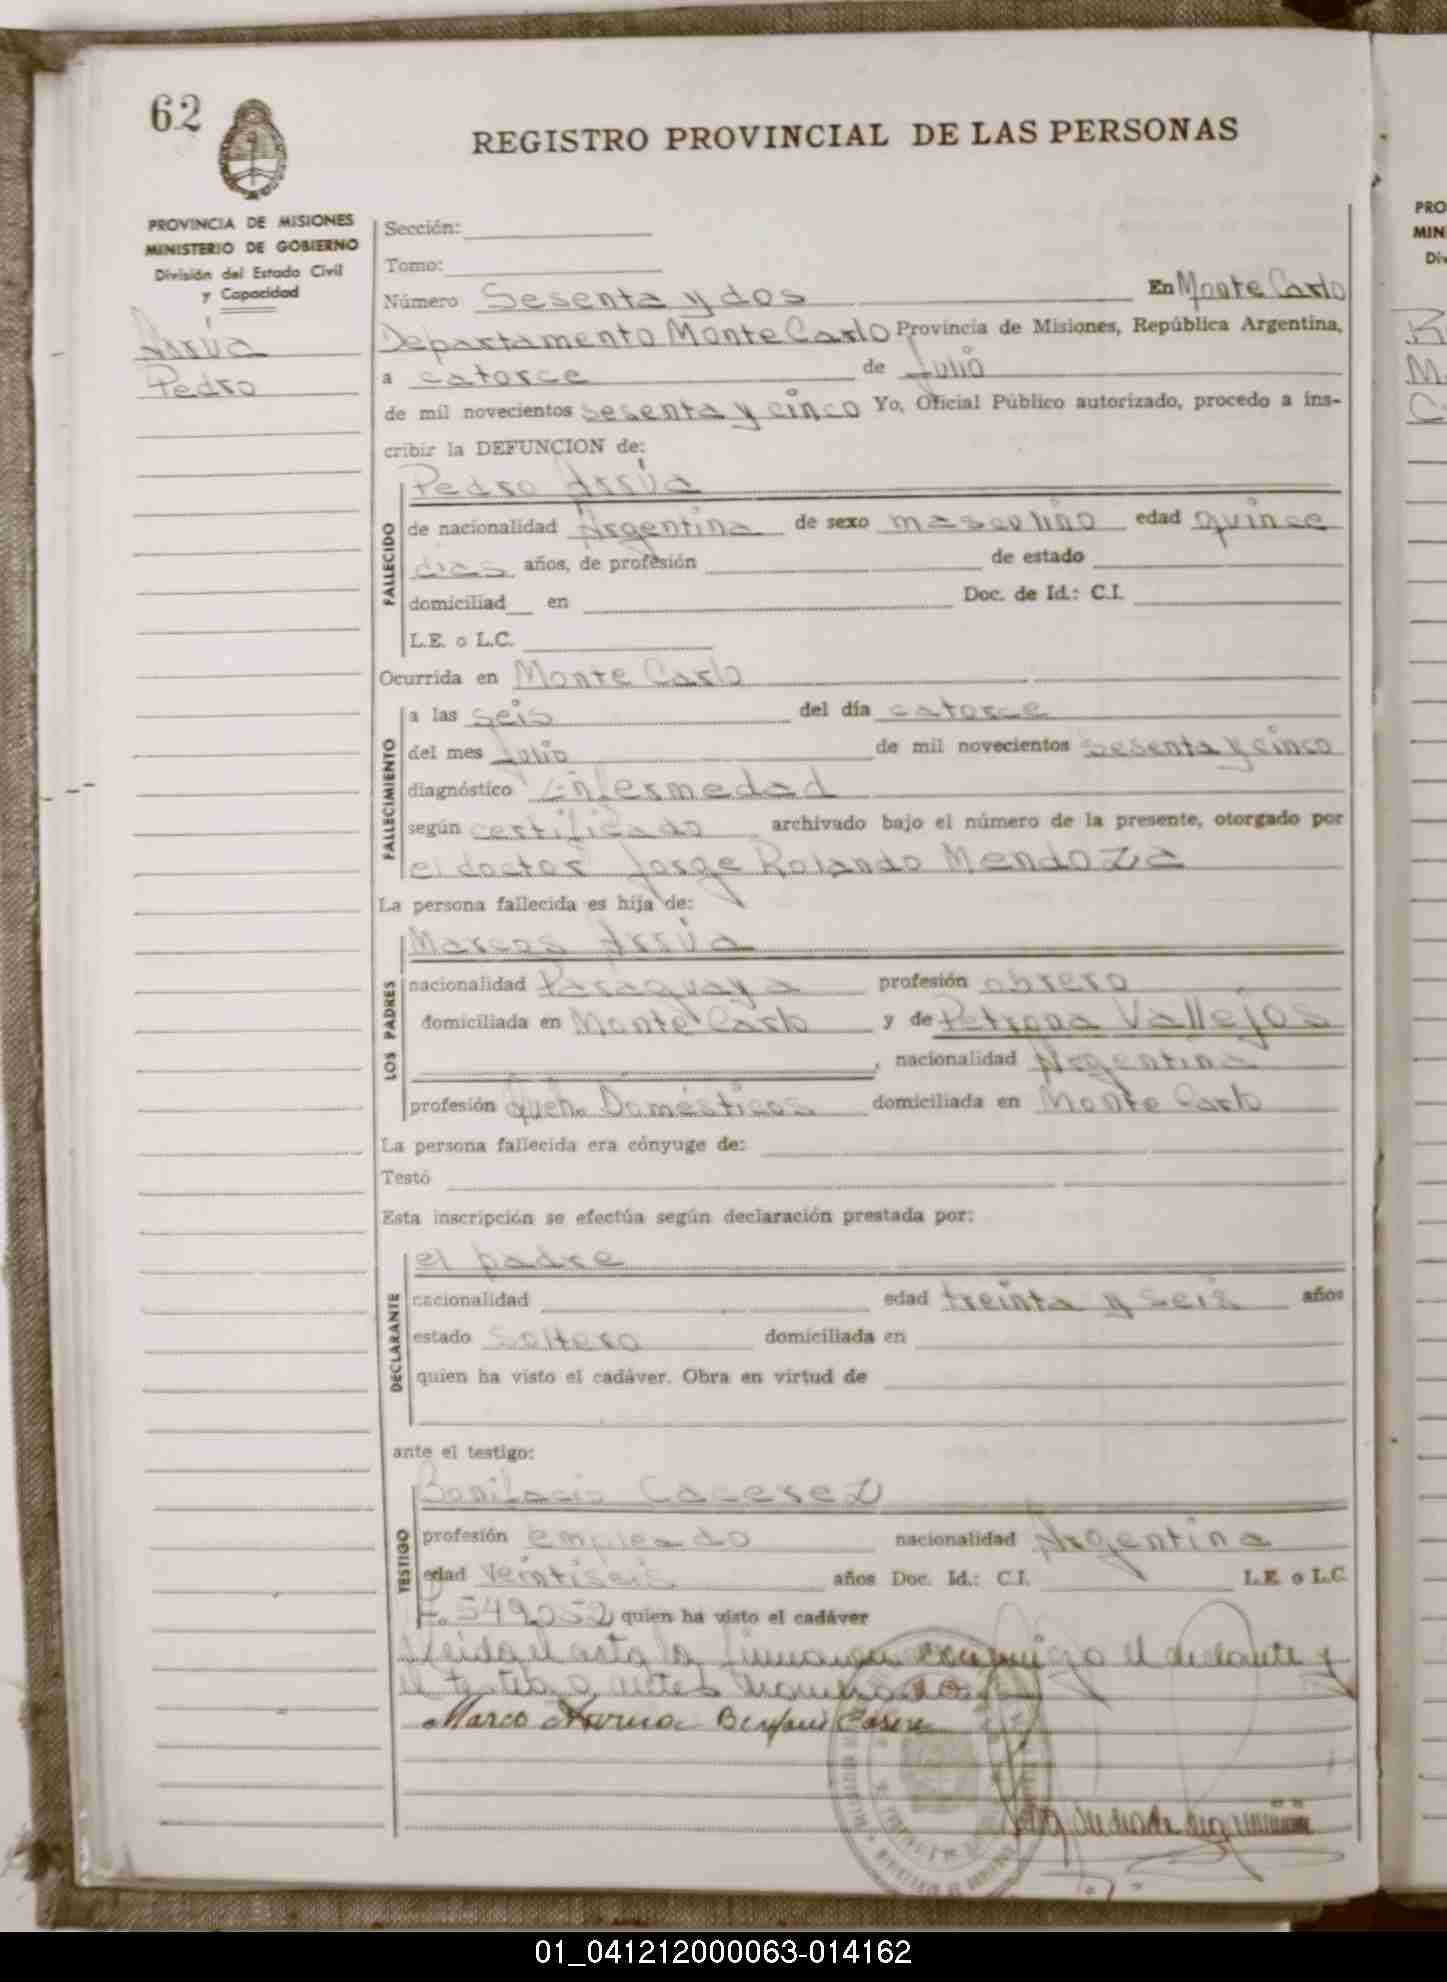 62
REGISTRO PROVINCIAL DE LAS PERSONAS
PROVINCIA DE MISIONES
MINISTERIO DE GOBIERNO
División del Estado Civil
y Capacidad
Arrúa
Pedro
Sección:
Tomo:
Número Sesenta y dos En Monte Carlo
Departamento Monte Carlo Provincia de Misiones, República Argentina,
a catorce de Julio
de mil novecientos sesenta y cinco Yo, Oficial Público autorizado, procedo a ins-
cribir la DEFUNCION de:
Pedro Arrúa
FALLECIDO
de nacionalidad Argentina de sexo masculino edad quince
dias años, de profesión de estado
domiciliad en Doc. de Id.: C.I.
L.E. o L.C.
Ocurrida en Monte Carlo
FALLECIMIENTO
a las seis del día catorce
del mes Julio de mil novecientos sesenta y cinco
diagnóstico Enfermedad
según certificado archivado bajo el número de la presente, otorgado por
el doctor Jorge Rolando Mendoza
La persona fallecida es hija de:
LOS PADRES
Marcos Arrúa
nacionalidad Paraguaya profesión obrero
domiciliada en Monte Carlo y de Petrona Vallejos
, nacionalidad Argentina
profesión Queh. Domésticos domiciliada en Monte Carlo
La persona fallecida era cónyuge de:
Testó
Esta inscripción se efectúa según declaración prestada por:
DECLARANTE
el padre
nacionalidad edad treinta y seis años
estado soltero domiciliada en
quien ha visto el cadáver. Obra en virtud de
ante el testigo:
TESTIGO
Bonifacio Cacerez
profesión empleado nacionalidad Argentina
edad veintiseis años Doc. Id.: C.I. L.E. o L.C.
549052 quien ha visto el cadáver
Leida el acta la firman conmigo el declarante y
el testigo antes
Marco
PRO
MIN
Div
01_041212000063-014162